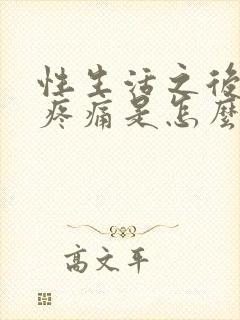 性生活之後
疼痛是怎麼
高文平